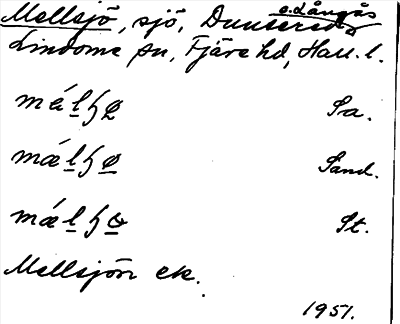 Mellsjö, sjö, Dunsered o. Långås
Lindome sn, Fjäre hd, Hall. l.
Sa.
Sand.
St.
Mellsjön ek.
1951.